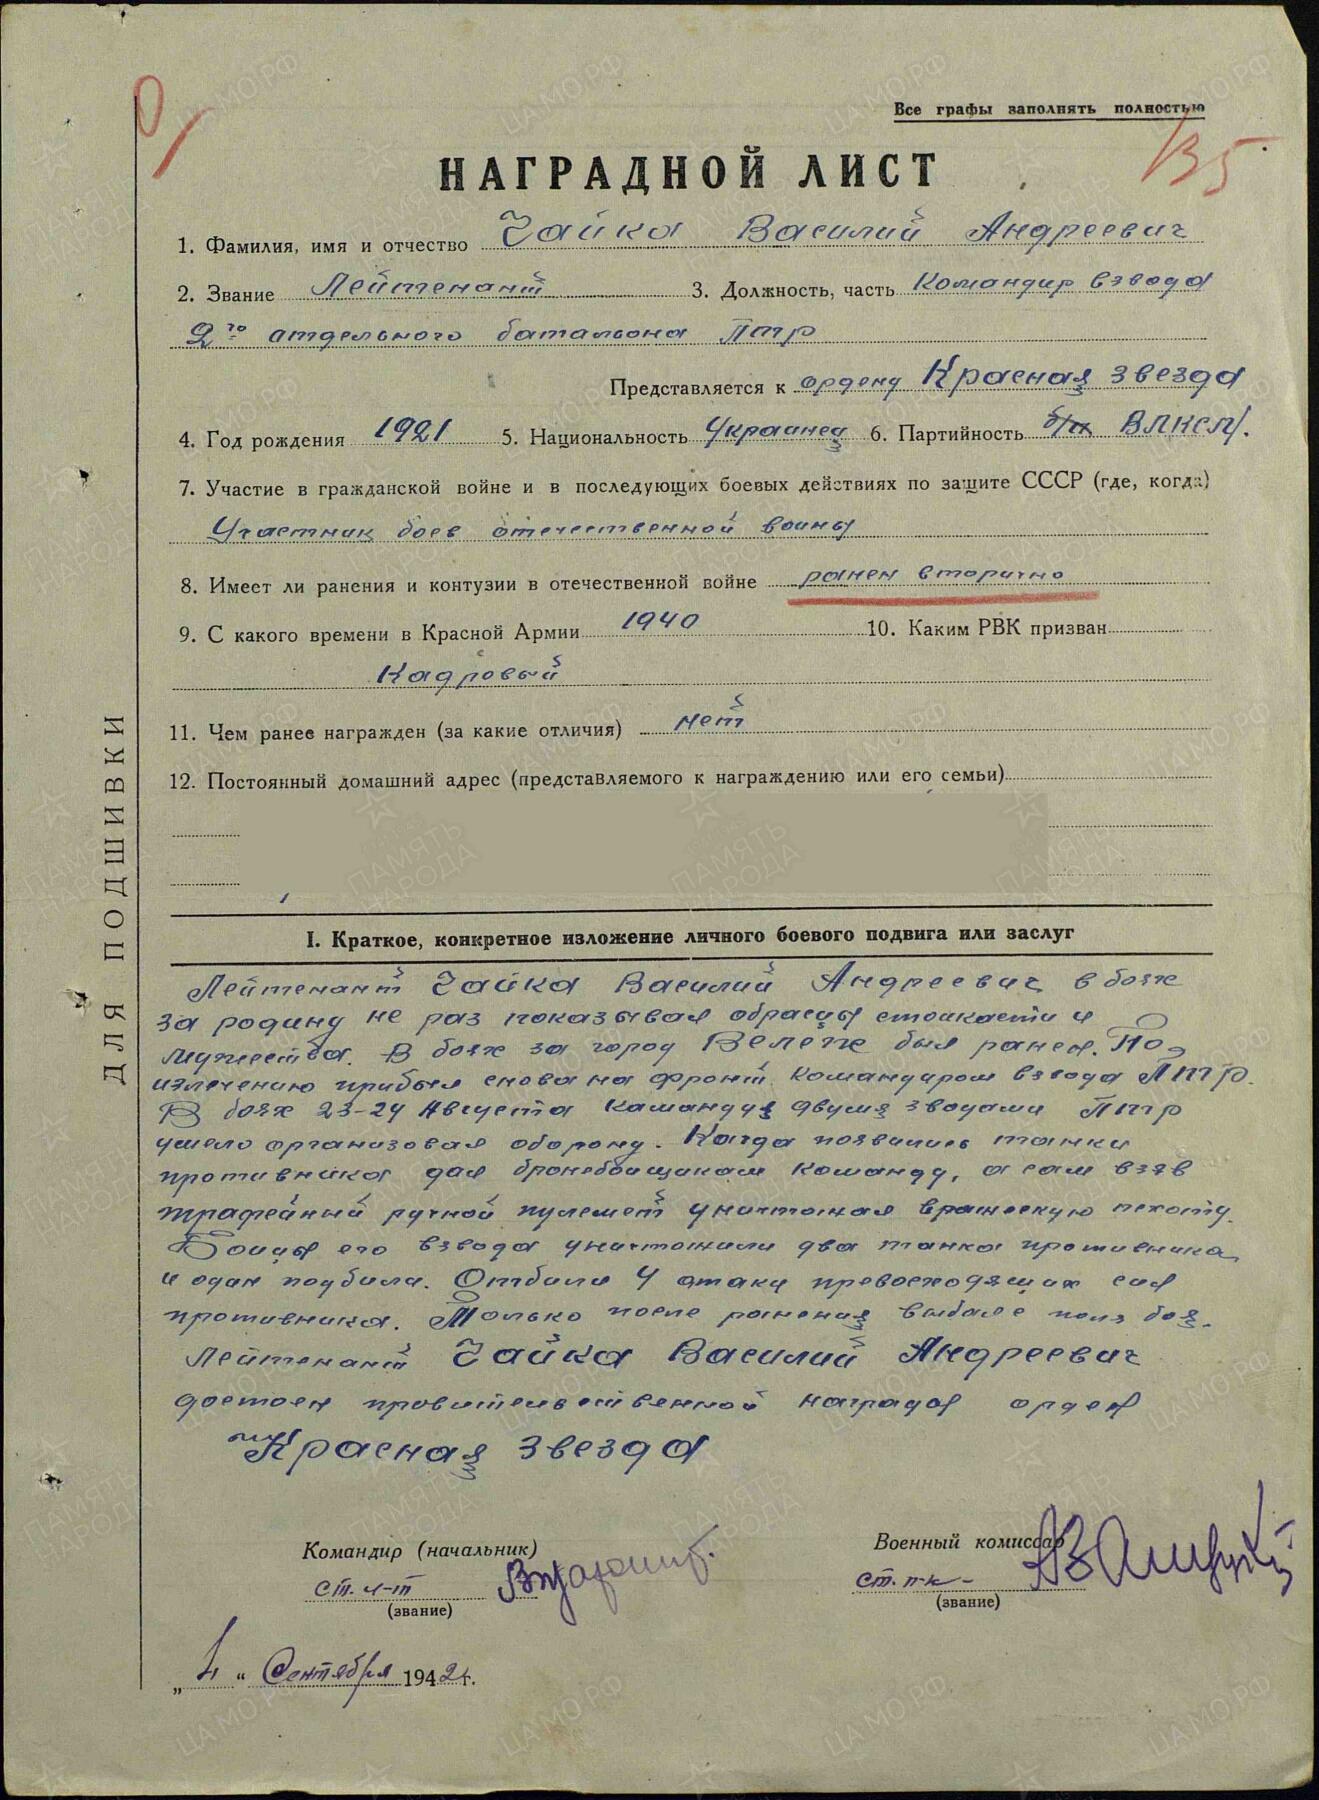 Все графы заполнять полностью
135
НАГРАДНОЙ ЛИСТ
1. Фамилия, имя и отчество Чайка Василий Андреевич
2. Звание Лейтенант 3. Должность, часть Командир взвода
2го отдельного батальона ПТР
Представляется к ордену Красная звезда
4. Год рождения 1921 5. Национальность Украинец 6. Партийность б/п ВЛКСМ.
7. Участие в гражданской войне и в последующих боевых действиях по защите СССР (где, когда)
Участник боев отечественной войны
8. Имеет ли ранения и контузии в отечественной войне ранен вторично
9. С какого времени в Красной Армии 1940 10. Каким РВК призван
Кадровый
11. Чем ранее награжден (за какие отличия) нет
12. Постоянный домашний адрес (представляемого к награждению или его семьи)
ДЛЯ ПОДШИВКИ
I. Краткое, конкретное изложение личного боевого подвига или заслуг
Лейтенант Чайка Василий Андреевич в боях
за родину не раз показывал образцы стойкости и
мужества. В боях за город Вележ был ранен. По
излечению прибыл снова на фронт командиром взвода ПТР.
В боях 23-24 Августа командуя двумя зводами ПТР
умело организовал оборону. Когда появились танки
противника дал бронебойщикам команду, а сам взяв
трафейный ручной пулемет уничтожал вражескую пехоту.
Бойцы его взвода уничтожили два танка противника
и один подбили. Отбили 4 атаки превосходящих сил
противника. Только после ранения выбыл с поля боя.
Лейтенант Чайка Василий Андреевич
достоен правительственной награды орден
Красная звезда
Командир (начальник)
ст. л-т
(звание)
Военный комиссар
ст. п-к
(звание)
„4“ Сентября 1942 г.
ПАМЯТЬ НАРОДА
ЦАМО.РФ